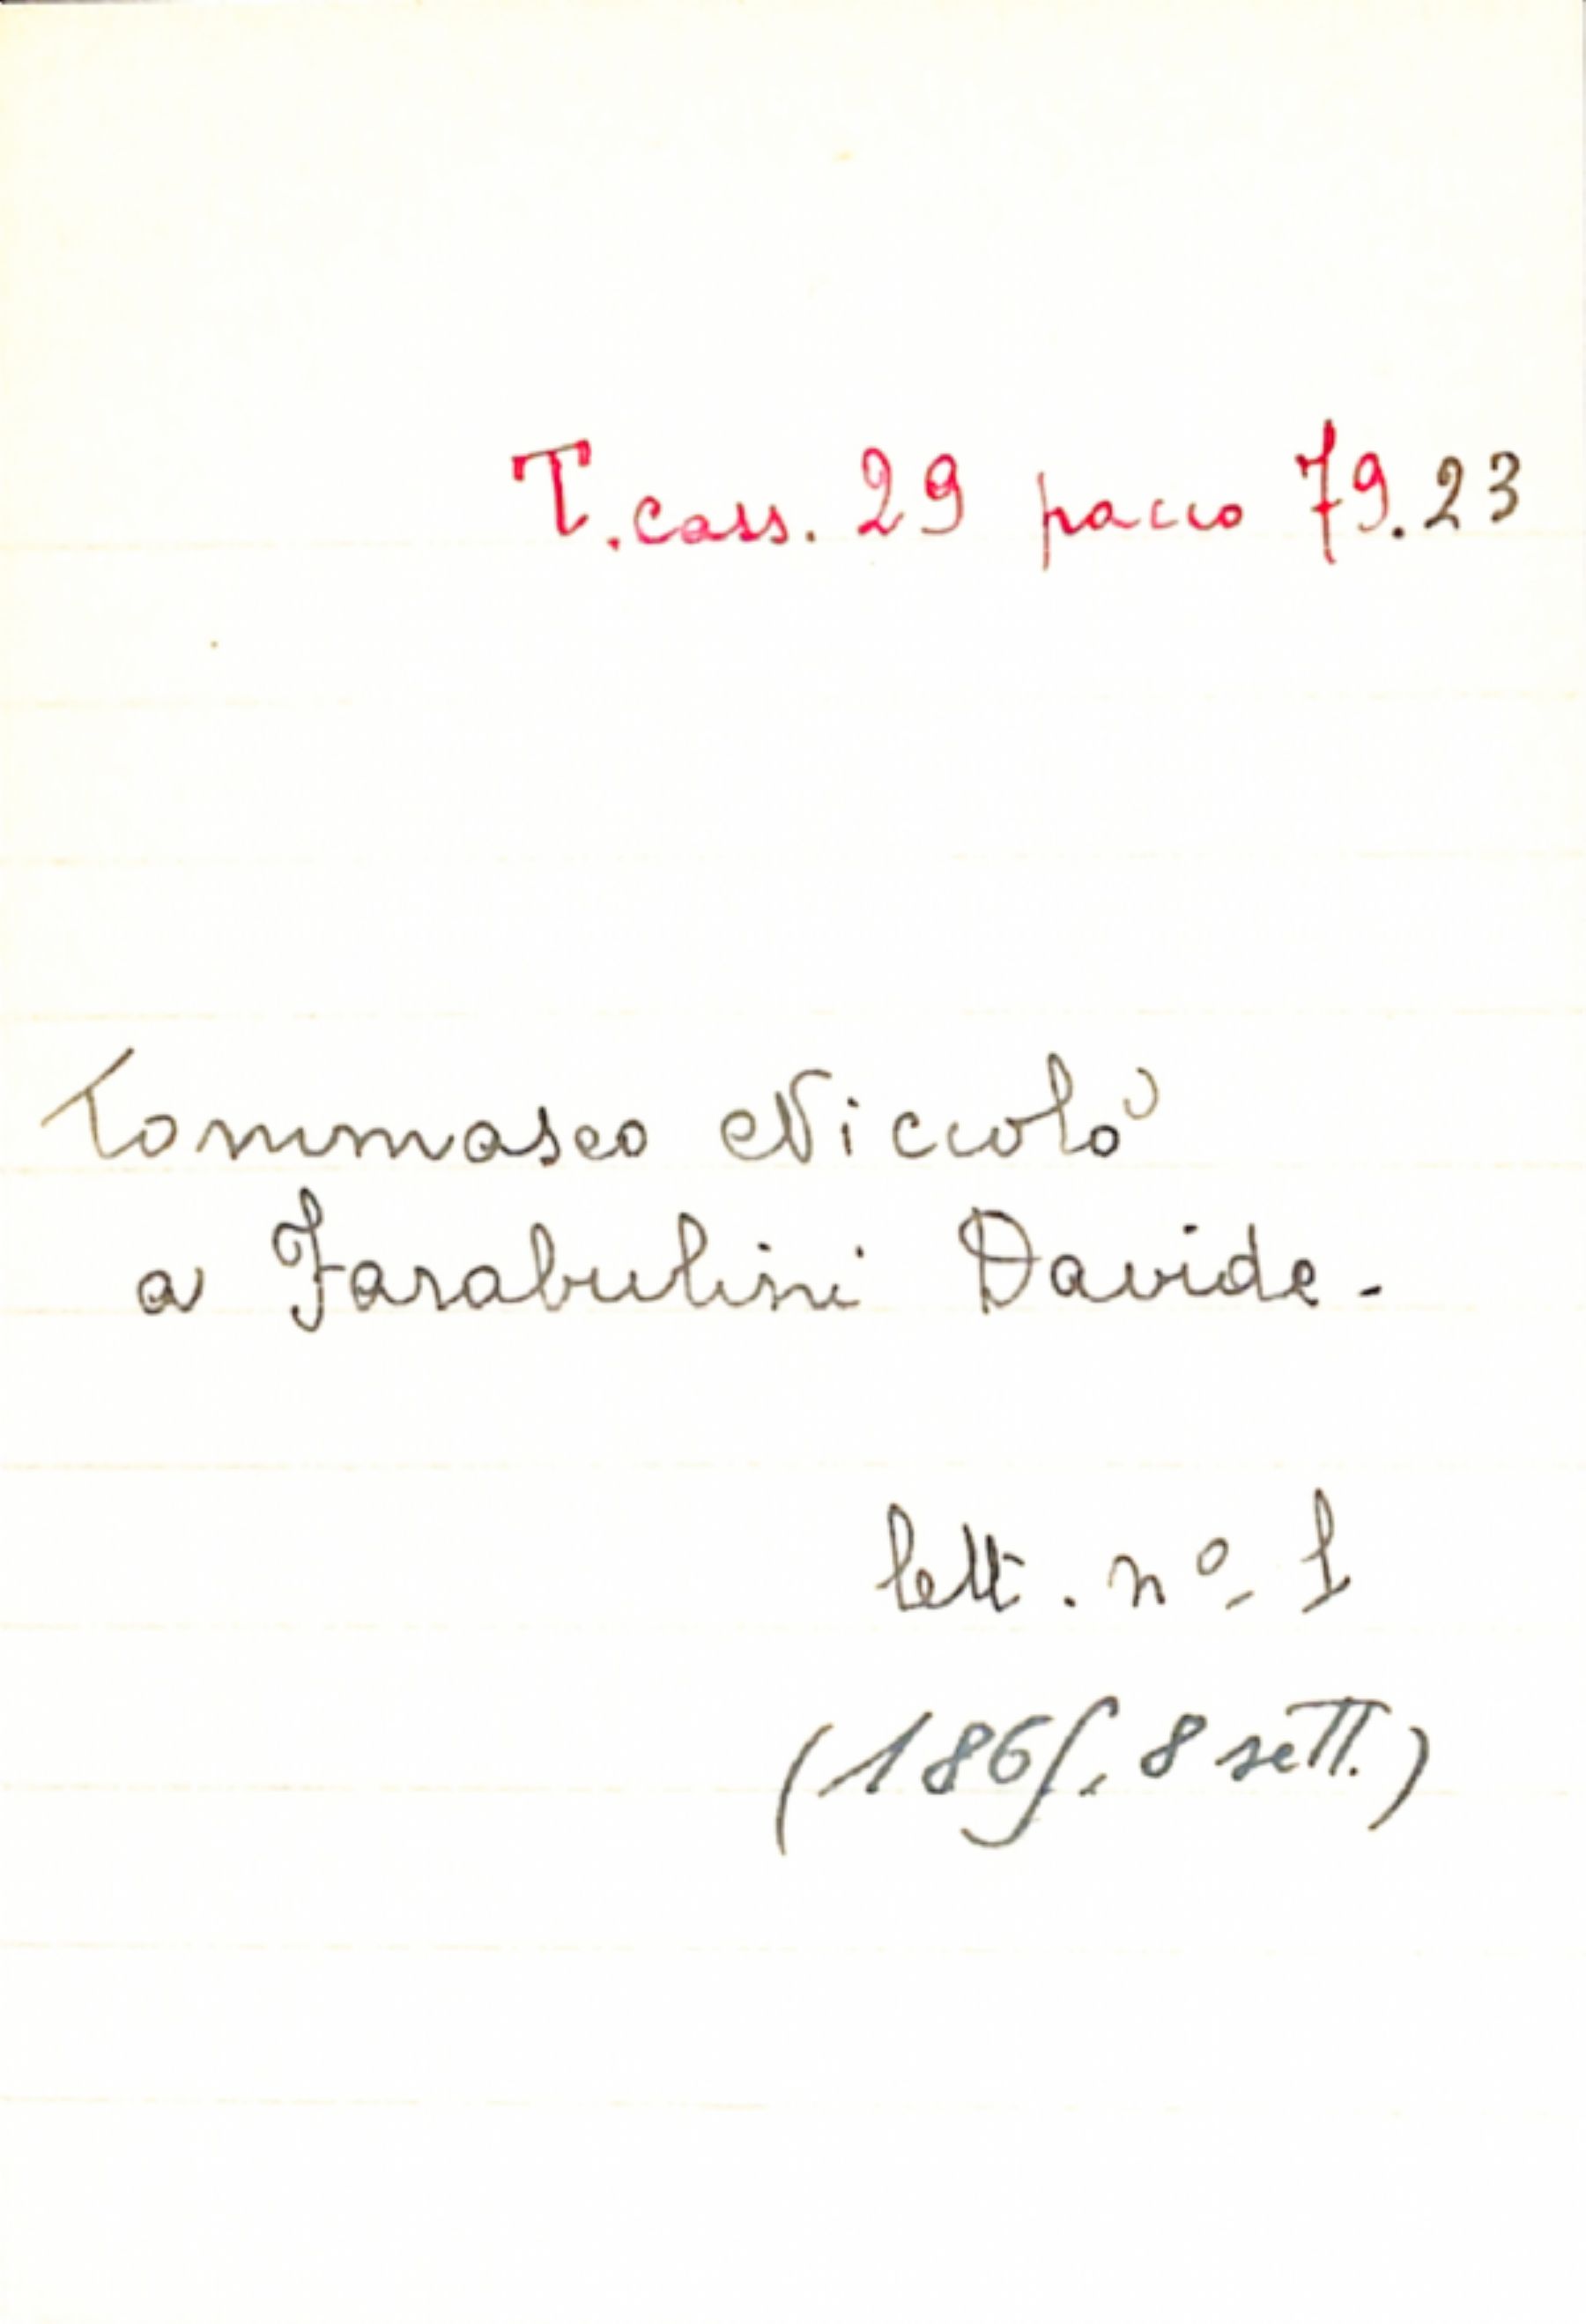 T. cass. 29 pacco 79.23
Tommaseo Niccolò
a Farabulini Davide.
lett. nº 1
(1865, 8 sett.)